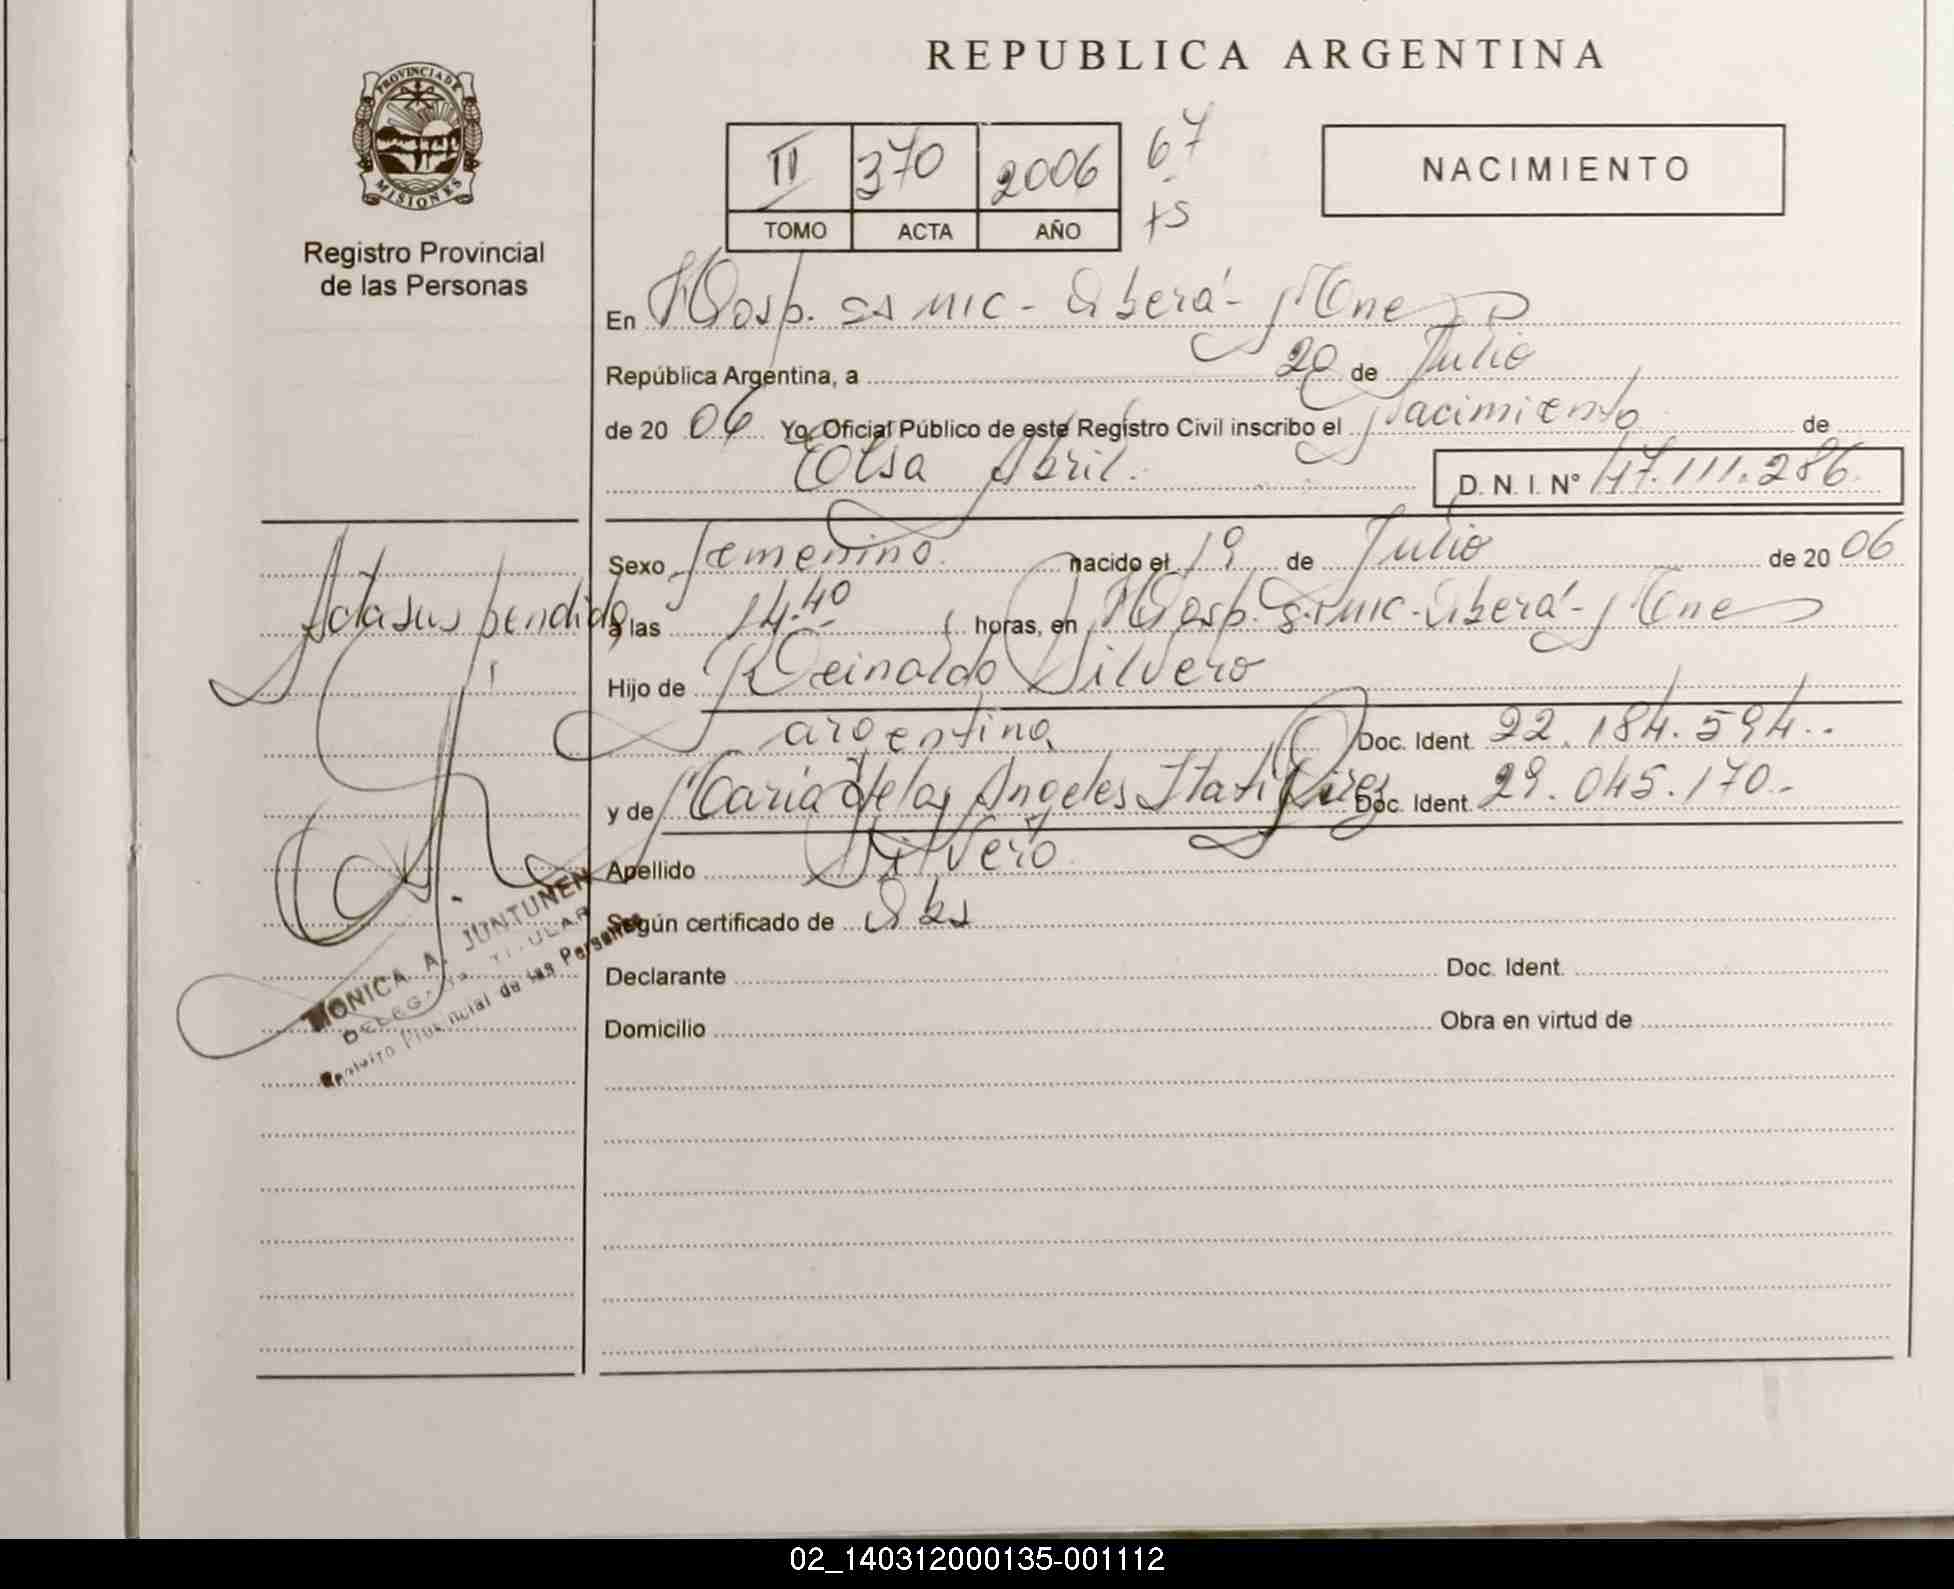 REPUBLICA ARGENTINA
PROVINCIA DE
MISIONES
Registro Provincial
de las Personas
II 370 2006 67
TOMO ACTA AÑO
NACIMIENTO
En Hosp. SAMIC - Oberá - Mnes
República Argentina, a 20 de Julio
de 20 06 Yo, Oficial Público de este Registro Civil inscribo el Nacimiento de
Elsa Abril. D. N. I. N° 47.111.286
Sexo Femenino. nacido el 19 de Julio de 20 06
a las 14.40 horas, en Hosp. SAMIC - Oberá - Mnes
Hijo de Reinaldo Silvero
argentina Doc. Ident. 22.184.594.-
y de María de los Angeles Itati Doc. Ident. 29.045.170.-
Apellido Silvero
Según certificado de Obs
Declarante Doc. Ident.
Domicilio Obra en virtud de
Acta suspendida
MONICA A. JUNTUNEN
DELEGADA TITULAR
Registro Provincial de las Personas
02_140312000135-001112